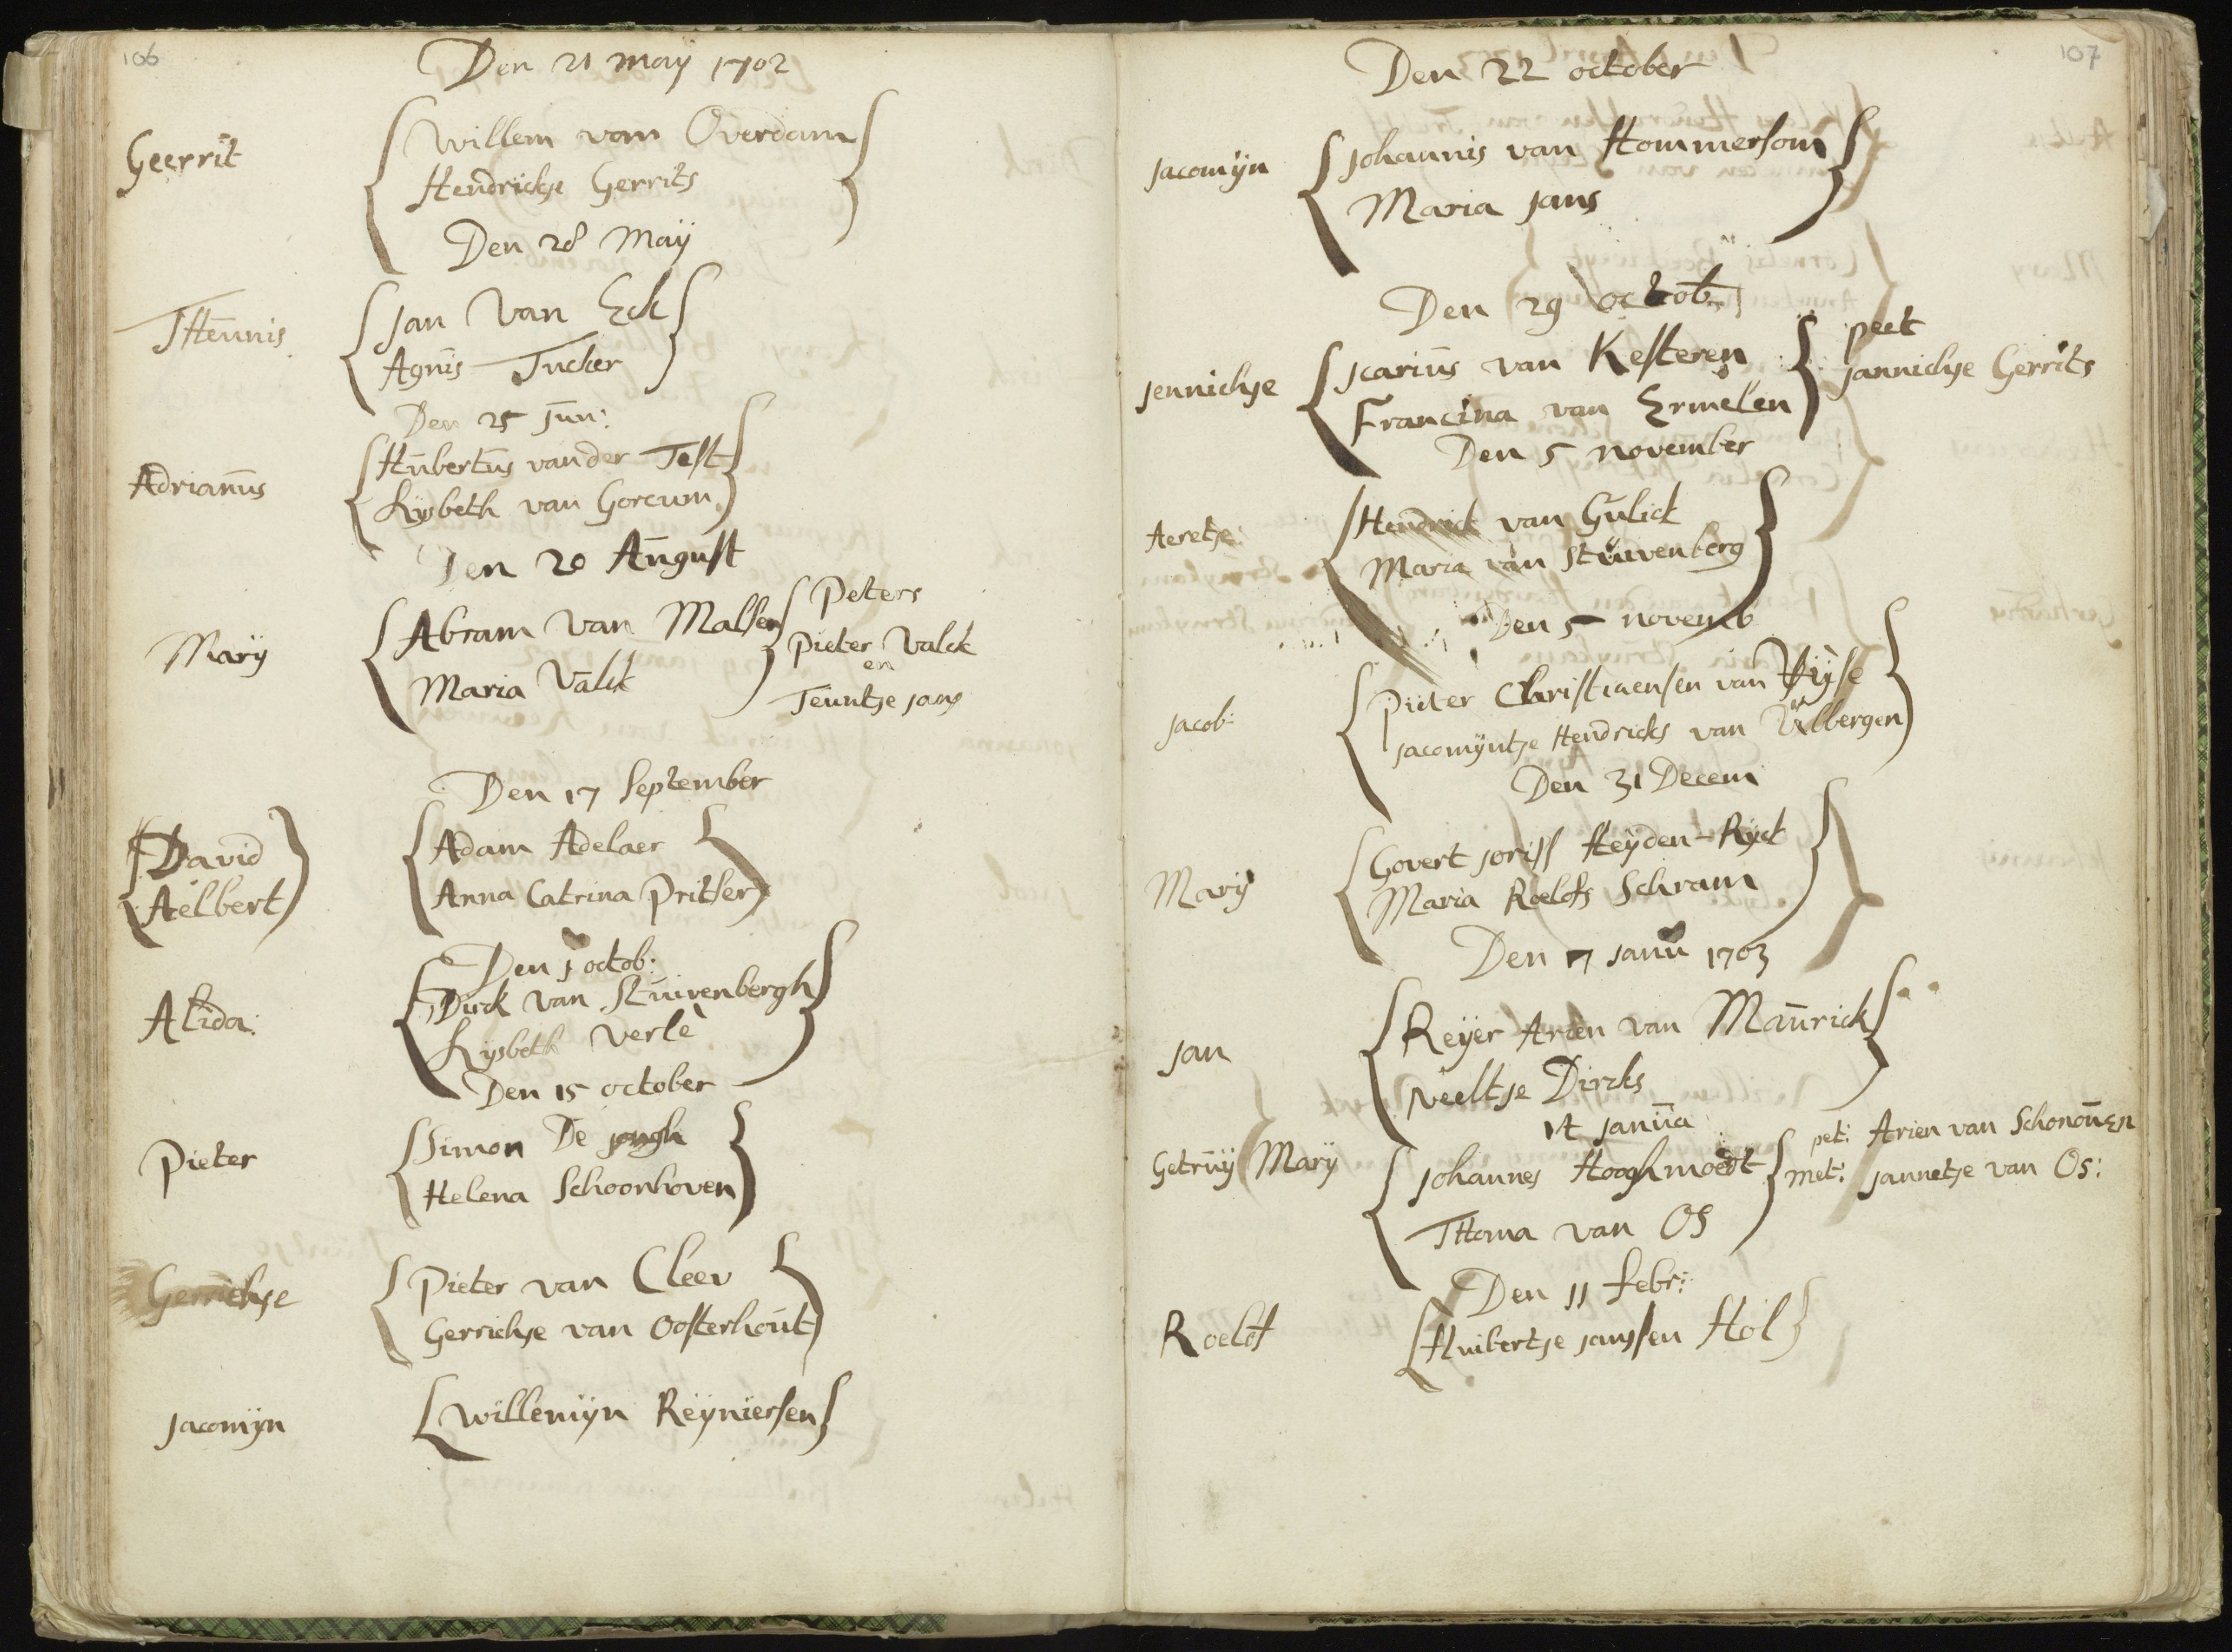 106
Den 21 maÿ 1702
Geerrit
Willem van Overdam
Hendrickje Gerrits
Den 28 Maÿ
THeunis
Jan Van Eck
Agnis Tucker
Den 25 Jun:
Adrianus
Hubertus vander Test
Lijsbeth van Gorcum
Den 20 August
Marÿ
Abram van Malsen
Maria Valck
Peters
Pieter Valck
en
Teuntje Jans
Den 17 September
David
Aelbert
Adam Adelaer
Anna Catrina Pritser
Den 1 octob:
Alida:
Dirck van Stuivenbergh
Lijsbeth Verlè
Den 15 october
Pieter
Simon De Jongh
Helena Schoonhoven
Gerrichje
Pieter van Cleev
Gerrichje van Oosterhout
Jacomÿn
Willemÿn Reÿniersen
107
Den 22 october
Jacomÿn
Johannis van Hommersom
Maria Jans
Den 29 octob
Jennichje
Icarius van Kesteren
Francina van Ermelen
peet
Jannichje Gerrits
Den 5 november
Aeretje:
Hendrick van Gulick
Maria van Stuivenberg
Den 5 novemb
Jacob:
Pieter Christiaensen van
Jacomÿntje Hendricks van Ulbergen
Den 31 Decem
Marÿ
Govert Joriss Heÿden-Rÿck
Maria Roelofs Schram
Den 7 Janu 1703
Jan
Reÿer Arien van Maurick
Neeltje Dircks
14 Janua
Getruÿ Marÿ
Johannes Hooghmoedt
THoma van OS
pet: Arien van Schonouen
met: Jannetje van Os:
Den 11 febr:
Roelof
Huibertje Janssen Hol